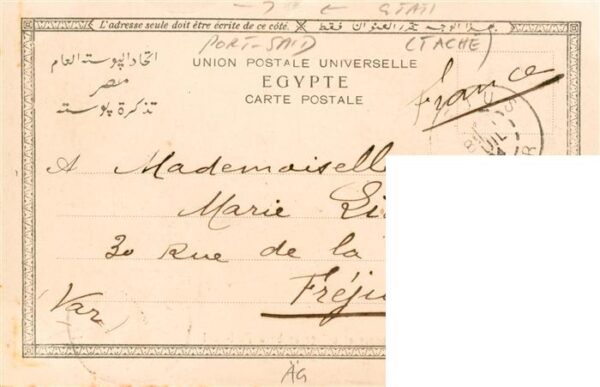 L'adresse seule doit être écrite de ce côté.
PORT-SAID
(TACHÉ)
UNION POSTALE UNIVERSELLE
EGYPTE
CARTE POSTALE
اتحاد البوسته العام
مصر
تذكرة بوسته
France
A Mademoiselle
Marie
30 Rue de la
Fréju
(Var)
AG